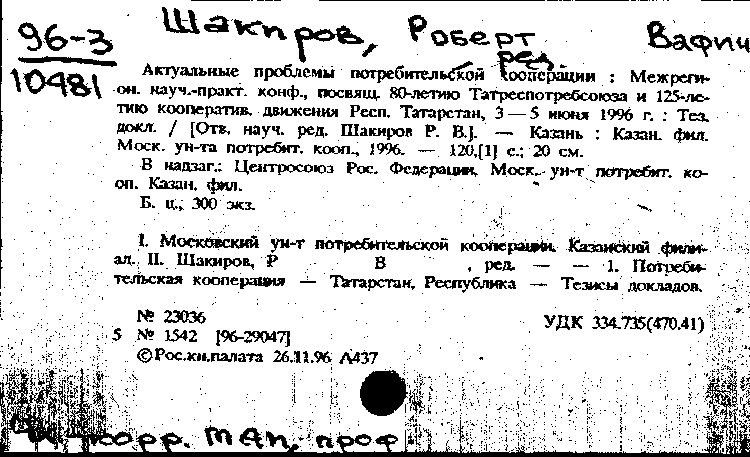 Шакиров, Роберт Вафич
96-3
10481
ред.
Актуальные проблемы потребительской кооперации : Межреги-
он. науч.-практ. конф., посвящ. 80-летию Татреспотребсоюза и 125-ле-
тию кооператив. движения Респ. Татарстан, 3—5 июня 1996 г. : Тез.
докл. / [Отв. науч. ред. Шакиров Р. В.]. — Казань : Казан. фил.
Моск. ун-та потребит. кооп., 1996. — 120,[1] с.; 20 см.
В надзаг.: Центросоюз Рос. Федерации, Моск. ун-т потребит. ко-
оп. Казан. фил.
Б. ц., 300 экз.
I. Московский ун-т потребительской кооперации. Казанский фили-
ал. II. Шакиров, Р В , ред. — — 1. Потреби-
тельская кооперация — Татарстан, Республика — Тезисы докладов.
№ 23036
УДК 334.735(470.41)
5 № 1542 [96-29047]
©Рос.кн.палата 26.11.96 Л437
чл.-корр. МАН, проф.